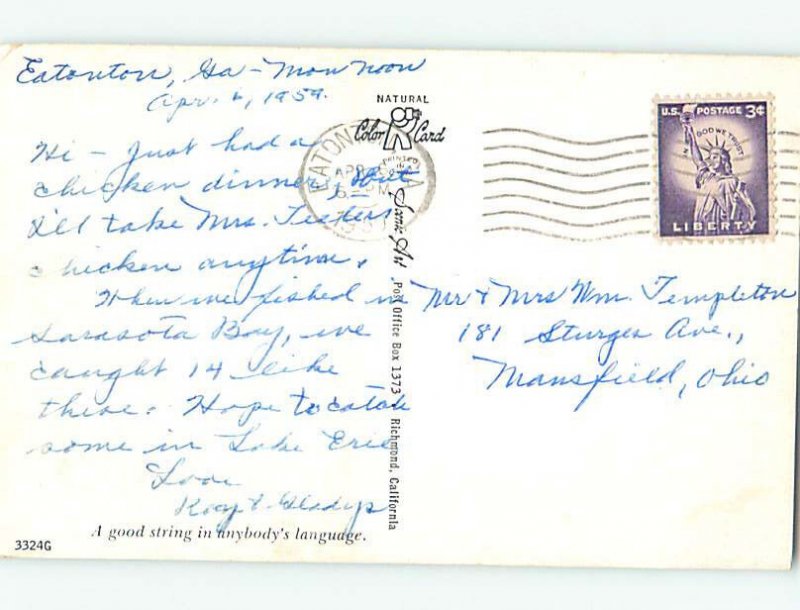 Eatonton, Ga - Mon Noon
Apr. 6, 1959.
Hi - Just had a
chicken dinner, But
I'll take Mrs.
chicken anytime.
When we fished in
Sarasota Bay, we
caught 14 like
these. Hope to catch
some in Lake Erie
Love
Roy & Gladys
A good string in anybody's language.
3324G
NATURAL
Color Card
PRINTED
IN
Scenic Art
Post Office Box 1373 Richmond, California
EATON GA
APR
PM
1959
U.S. POSTAGE 3¢
IN GOD WE TRUST
LIBERTY
Mr & Mrs Wm. Templeton
181 Sturges Ave.,
Mansfield, Ohio